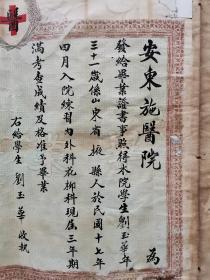 安東施醫院 為
發給畢業證書事照得本院學生劉玉華年
三十一歲係山東省掖縣人於民國十七年
四月入院練習內外科花柳科現屆三年期
滿考查成績及格准予畢業
右給學生劉玉華收執